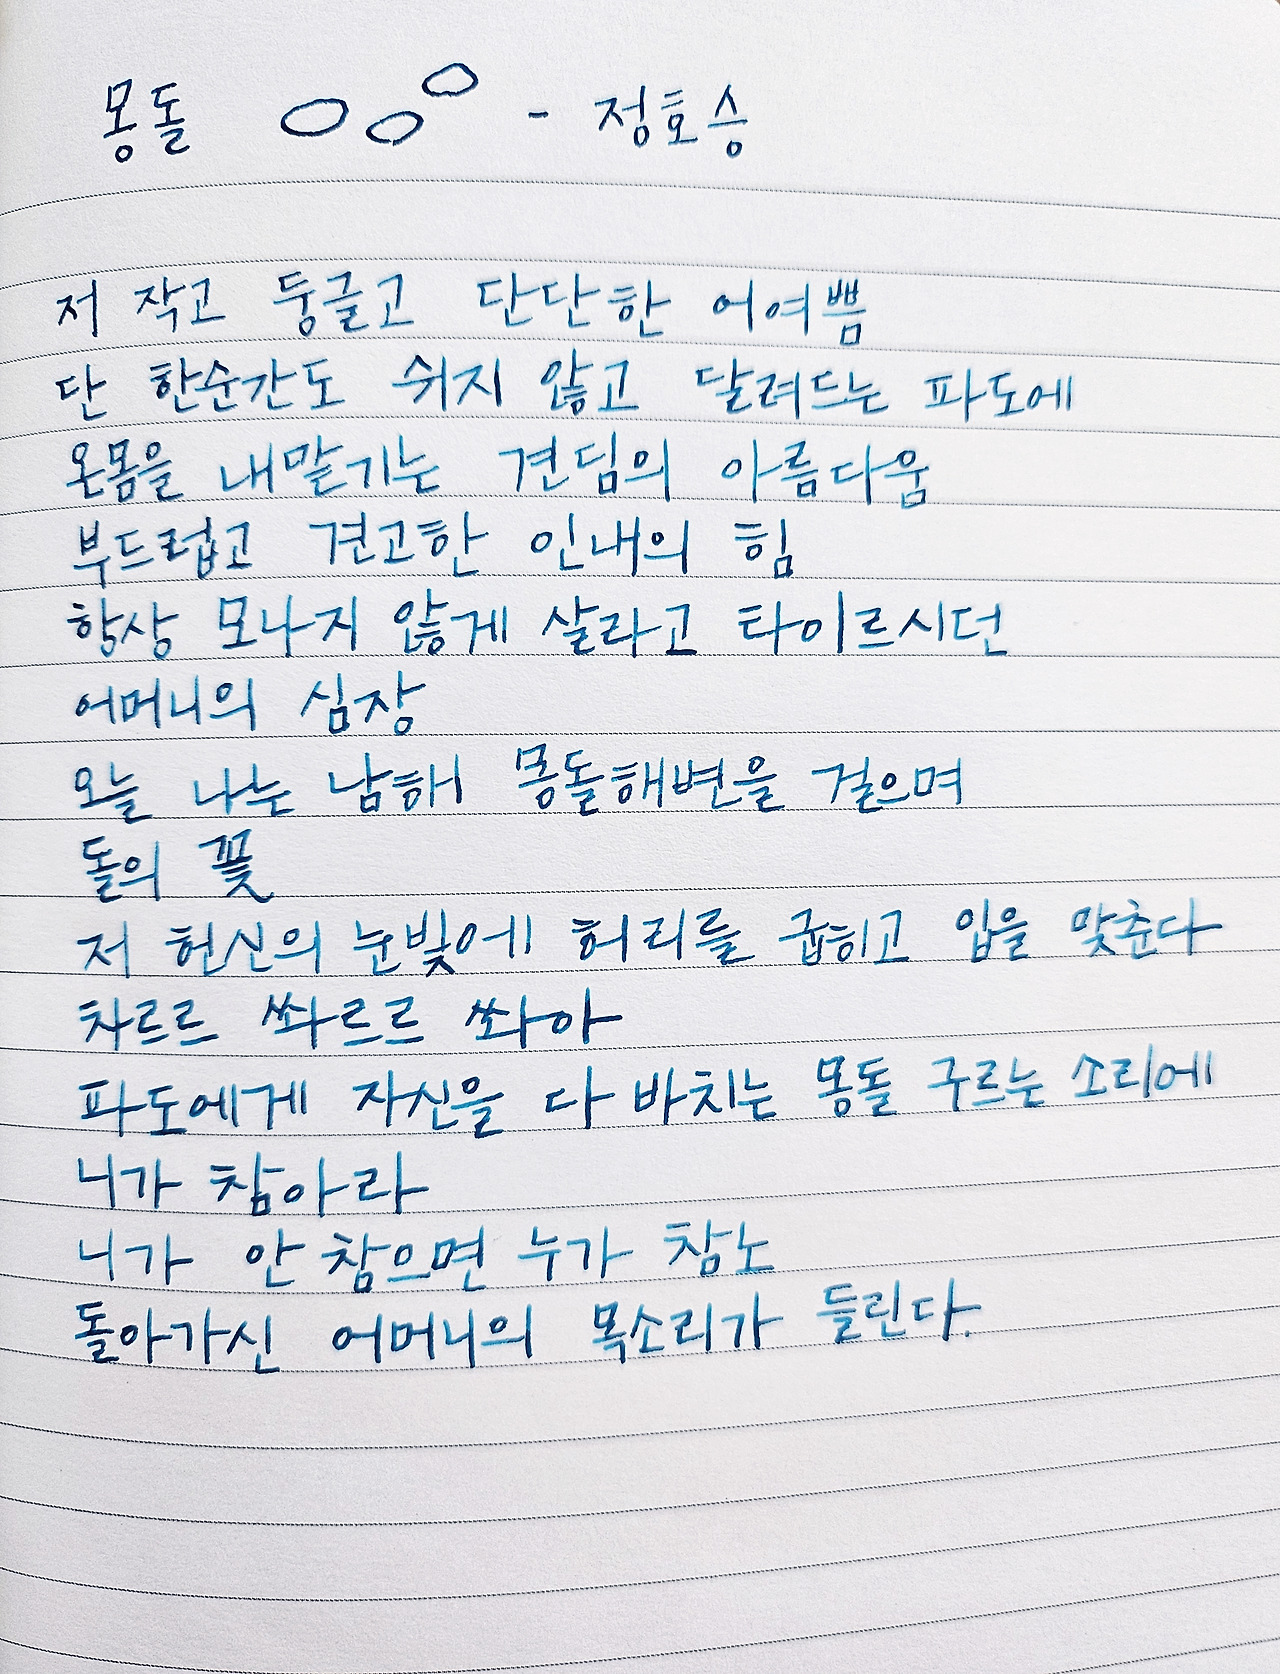 몽돌 - 정호승
저 작고 둥글고 단단한 어여쁨
단 한순간도 쉬지 않고 달려드는 파도에
온몸을 내맡기는 견딤의 아름다움
부드럽고 견고한 인내의 힘
항상 모나지 않게 살라고 타이르시던
어머니의 심장
오늘 나는 남해 몽돌해변을 걸으며
돌의 꽃
저 헌신의 눈빛에 허리를 굽히고 입을 맞춘다
차르르 쏴르르 쏴아
파도에게 자신을 다 바치는 몽돌 구르는 소리에
니가 참아라
니가 안 참으면 누가 참노
돌아가신 어머니의 목소리가 들린다.